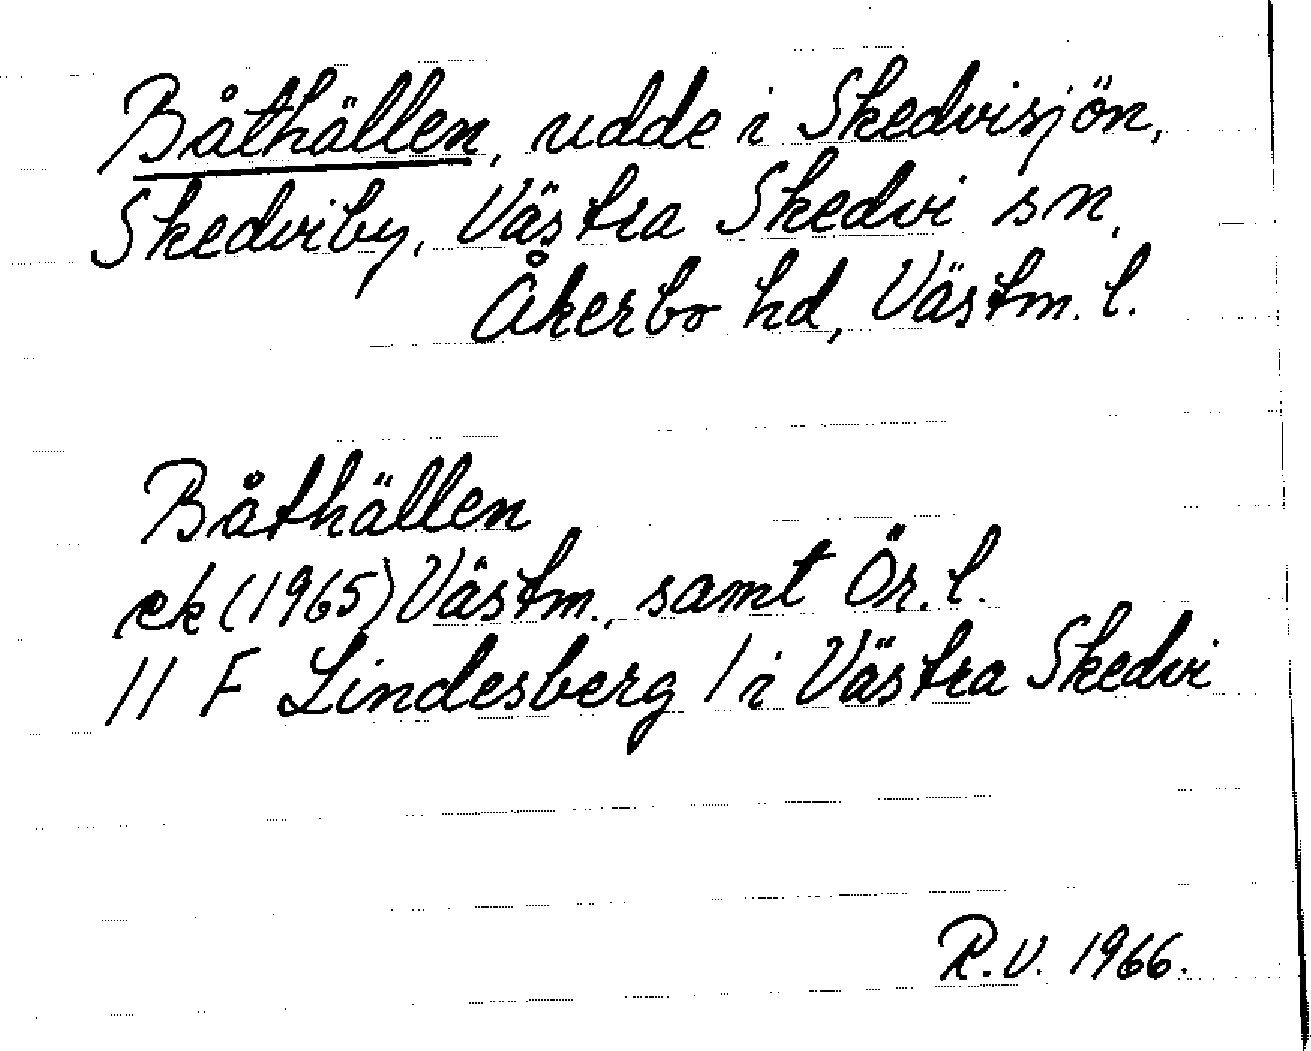 Båthällen, udde i Skedvisjön,
Skedviby, Västra Skedvi sn,
Åkerbo hd, Västm. l.
Båthällen
ek (1965) Västm., samt Ör. l.
11 F Lindesberg / i Västra Skedvi
R.V. 1966.